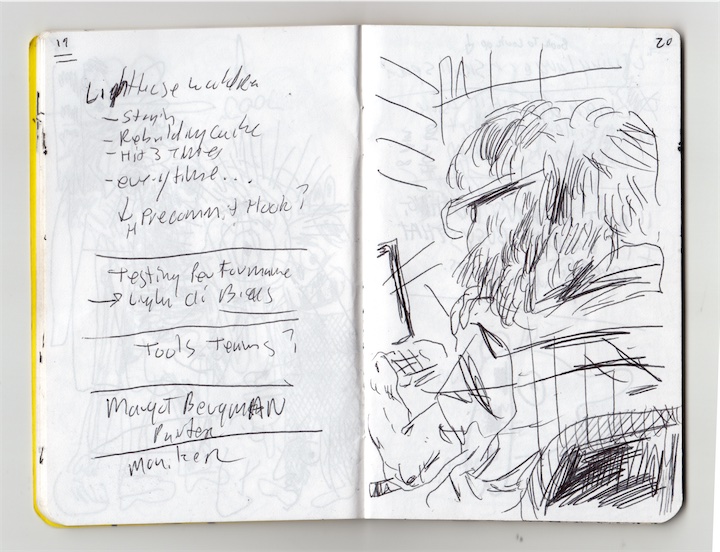 19
Lighthouse
- Rebuilding cache
- Hit 3 Times
- every time...
Precommit Hook?
Testing Performance
→ Light ci Bi
Tools Teams?
Margot Bergman
Painter
Moniker
20